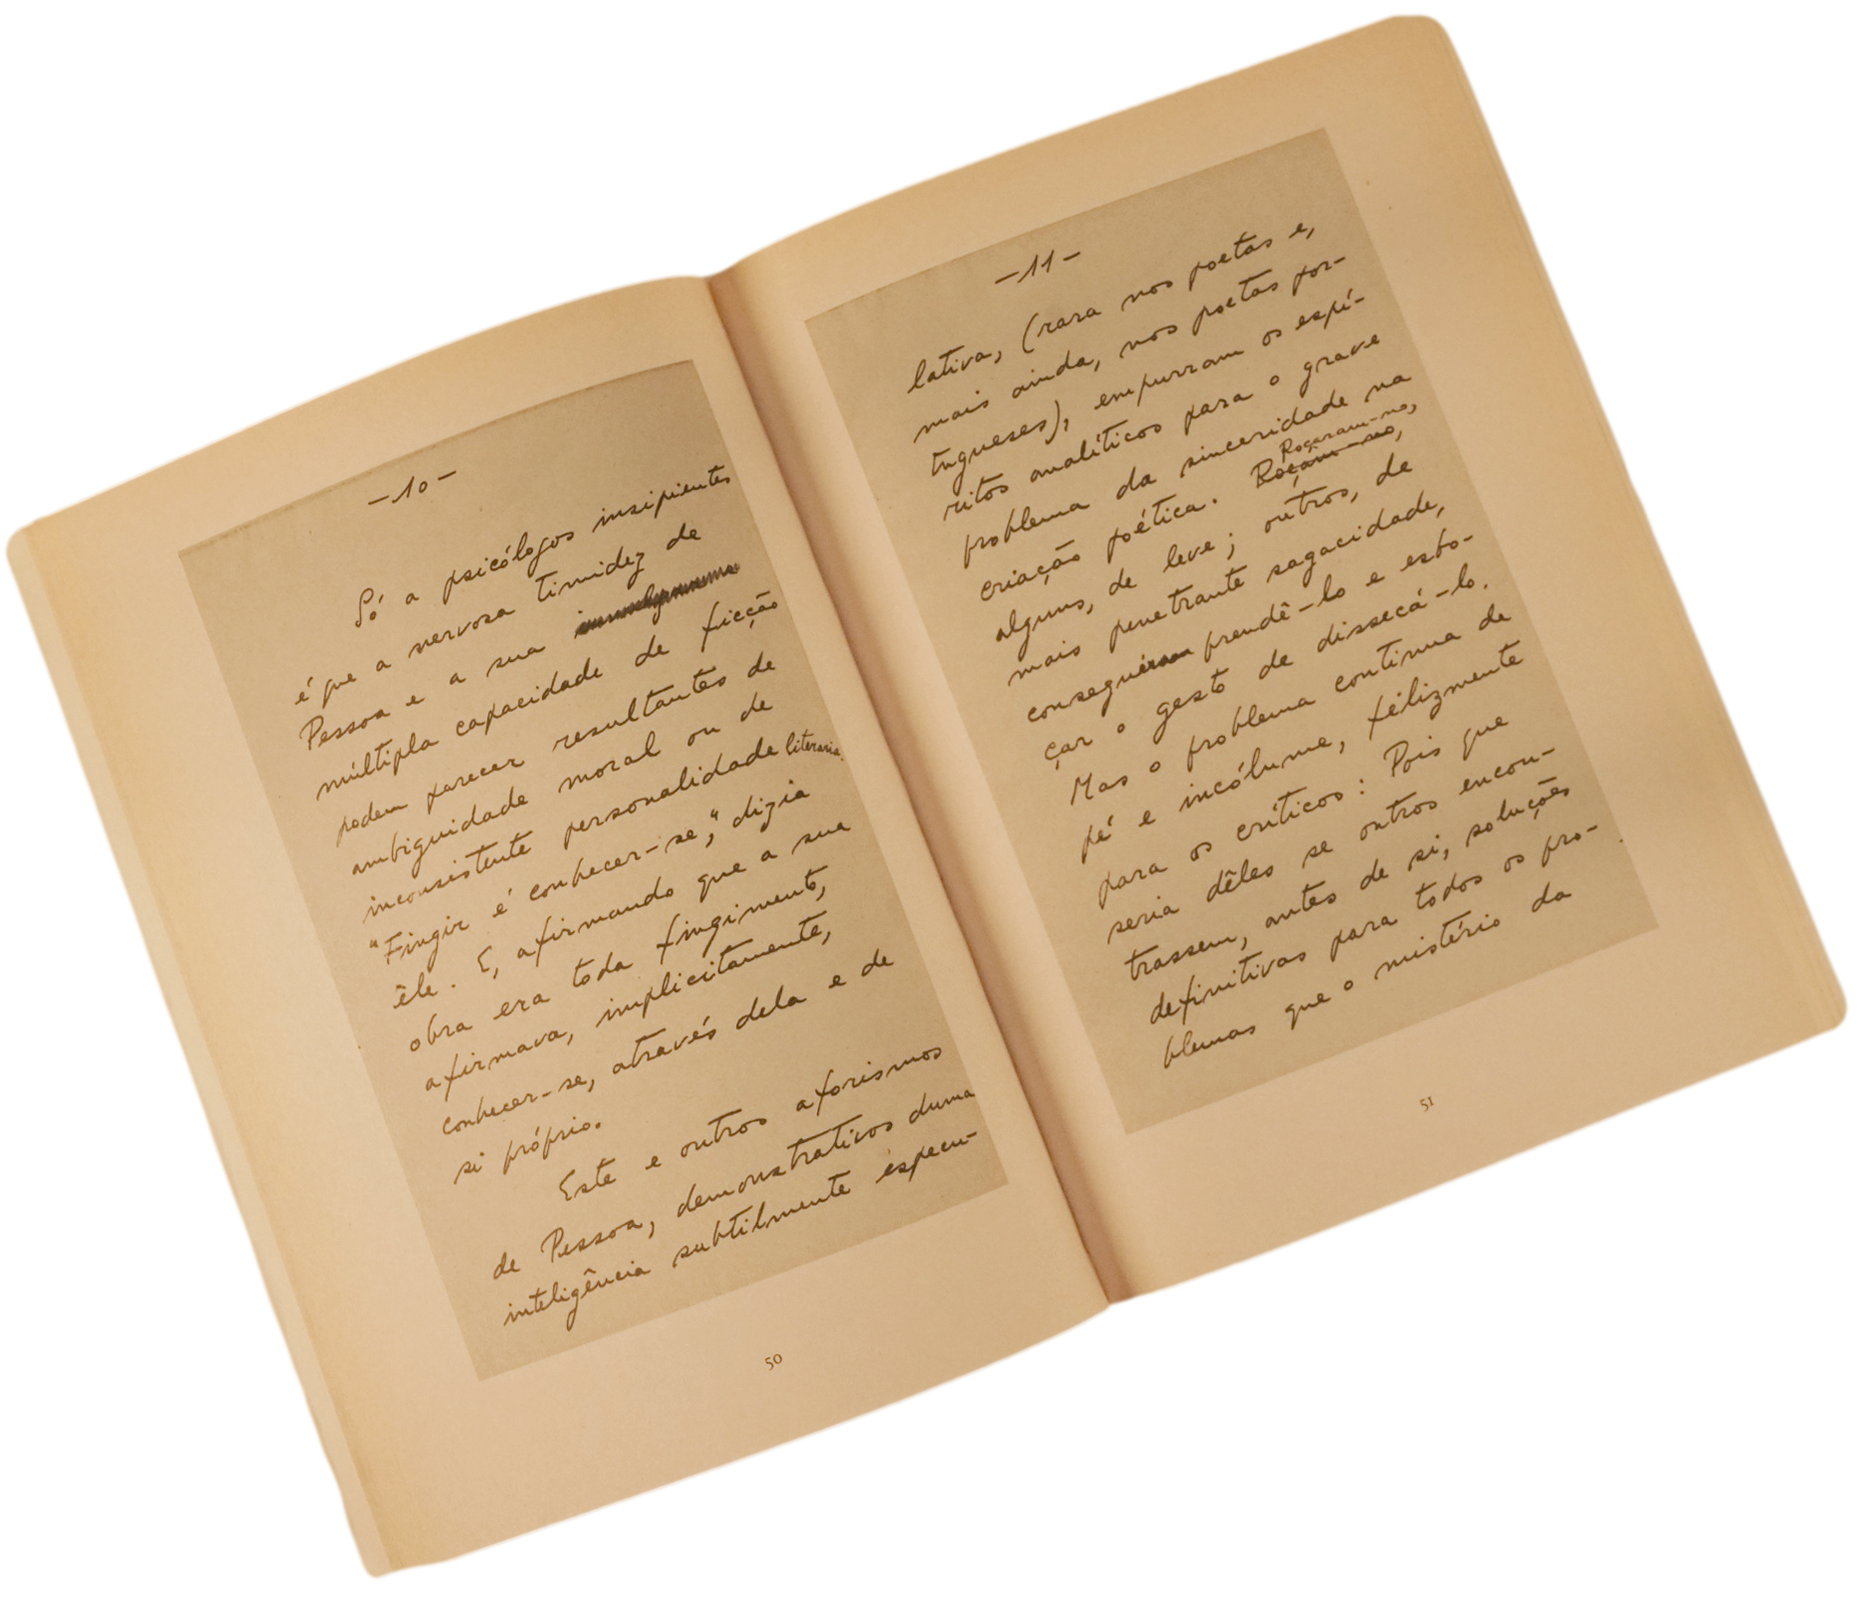 -10-
Só a psicólogos insipientes
é que a nervosa timidez de
Pessoa e a sua
múltipla capacidade de ficção
podem parecer resultantes de
ambiguidade moral ou de
inconsistente personalidade literaria.
"Fingir é conhecer-se," dizia
êle. E, afirmando que a sua
obra era toda fingimento,
afirmava, implicitamente,
conhecer-se, através dela e de
si próprio.
Este e outros aforismos
de Pessoa, demonstrativos duma
inteligência subtilmente especu-
50
-11-
lativa, (rara nos poetas e,
mais ainda, nos poetas por-
tugueses), empurram os espí-
ritos analíticos para o grave
problema da sinceridade na
criação poética. Roçaram-no,
alguns, de leve; outros, de
mais penetrante sagacidade,
prendê-lo e esbo-
çar o gesto de dissecá-lo.
Mas o problema continua de
pé e incólume, felizmente
para os críticos: Pois que
seria dêles se outros encon-
trassem, antes de si, soluções
definitivas para todos os pro-
blemas que o mistério da
51